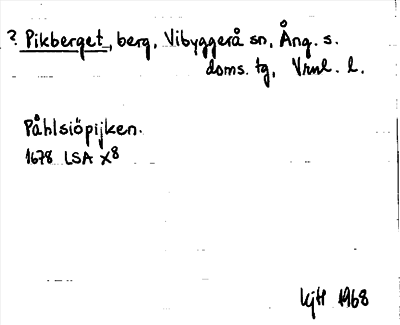 ? Pikberget, berg, Vibyggerå sn, Ång. s.
doms. tg, Vrnl. l.
Påhlsiöpijken.
1678 LSA X8
KjH 1968